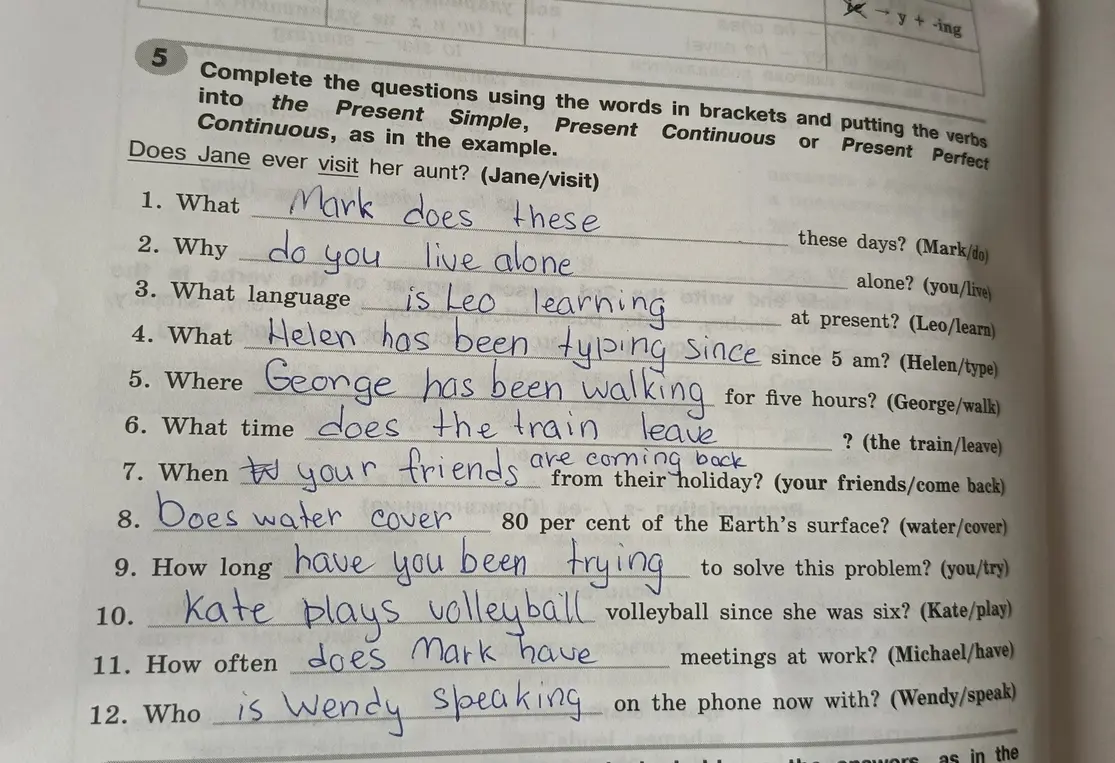 → y + -ing
5
Complete the questions using the words in brackets and putting the verbs
into the Present Simple, Present Continuous or Present Perfect
Continuous, as in the example.
Does Jane ever visit her aunt? (Jane/visit)
1. What Mark does these these days? (Mark/do)
2. Why do you live alone alone? (you/live)
3. What language is Leo learning at present? (Leo/learn)
4. What Helen has been typing since since 5 am? (Helen/type)
5. Where George has been walking for five hours? (George/walk)
6. What time does the train leave ? (the train/leave)
7. When your friends are coming back from their holiday? (your friends/come back)
8. Does water cover 80 per cent of the Earth's surface? (water/cover)
9. How long have you been trying to solve this problem? (you/try)
10. Kate plays volleyball volleyball since she was six? (Kate/play)
11. How often does Mark have meetings at work? (Michael/have)
12. Who is Wendy speaking on the phone now with? (Wendy/speak)
answers, as in the